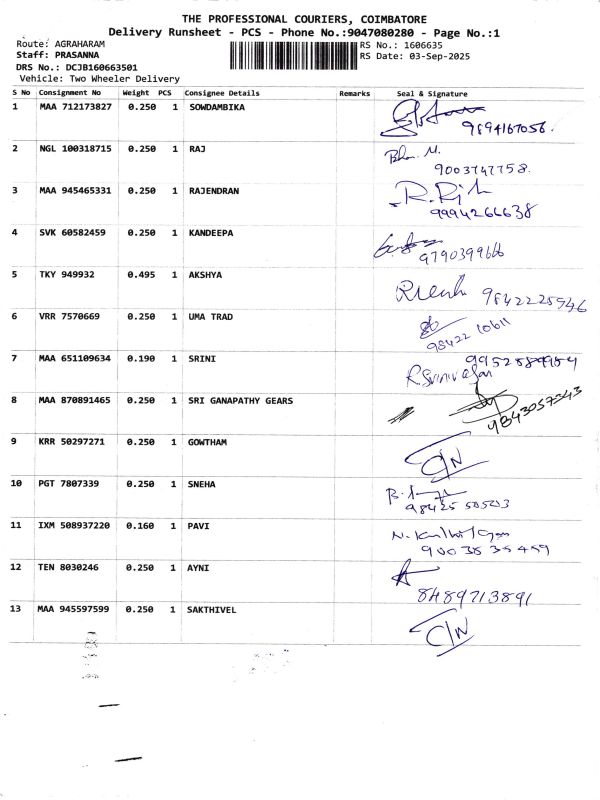 THE PROFESSIONAL COURIERS, COIMBATORE
Delivery Runsheet - PCS - Phone No.:9047080280 - Page No.:1
Route: AGRAHARAM RS No.: 1606635
Staff: PRASANNA RS Date: 03-Sep-2025
DRS No.: DCJB160663501
Vehicle: Two Wheeler Delivery
S No Consignment No Weight PCS Consignee Details Remarks Seal & Signature
1 MAA 712173827 0.250 1 SOWDAMBIKA
9894167056.
2 NGL 100318715 0.250 1 RAJ
M.
9003747758.
3 MAA 945465331 0.250 1 RAJENDRAN
9994266638
4 SVK 60582459 0.250 1 KANDEEPA
9790399666
5 TKY 949932 0.495 1 AKSHYA
9842225946
6 VRR 7570669 0.250 1 UMA TRAD
98422 10611
7 MAA 651109634 0.190 1 SRINI
R.Srinivasan
8 MAA 870891465 0.250 1 SRI GANAPATHY GEARS
9843057343
9 KRR 50297271 0.250 1 GOWTHAM
C/N
10 PGT 7807339 0.250 1 SNEHA
11 IXM 508937220 0.160 1 PAVI
12 TEN 8030246 0.250 1 AYNI
8489713891
13 MAA 945597599 0.250 1 SAKTHIVEL
C/N